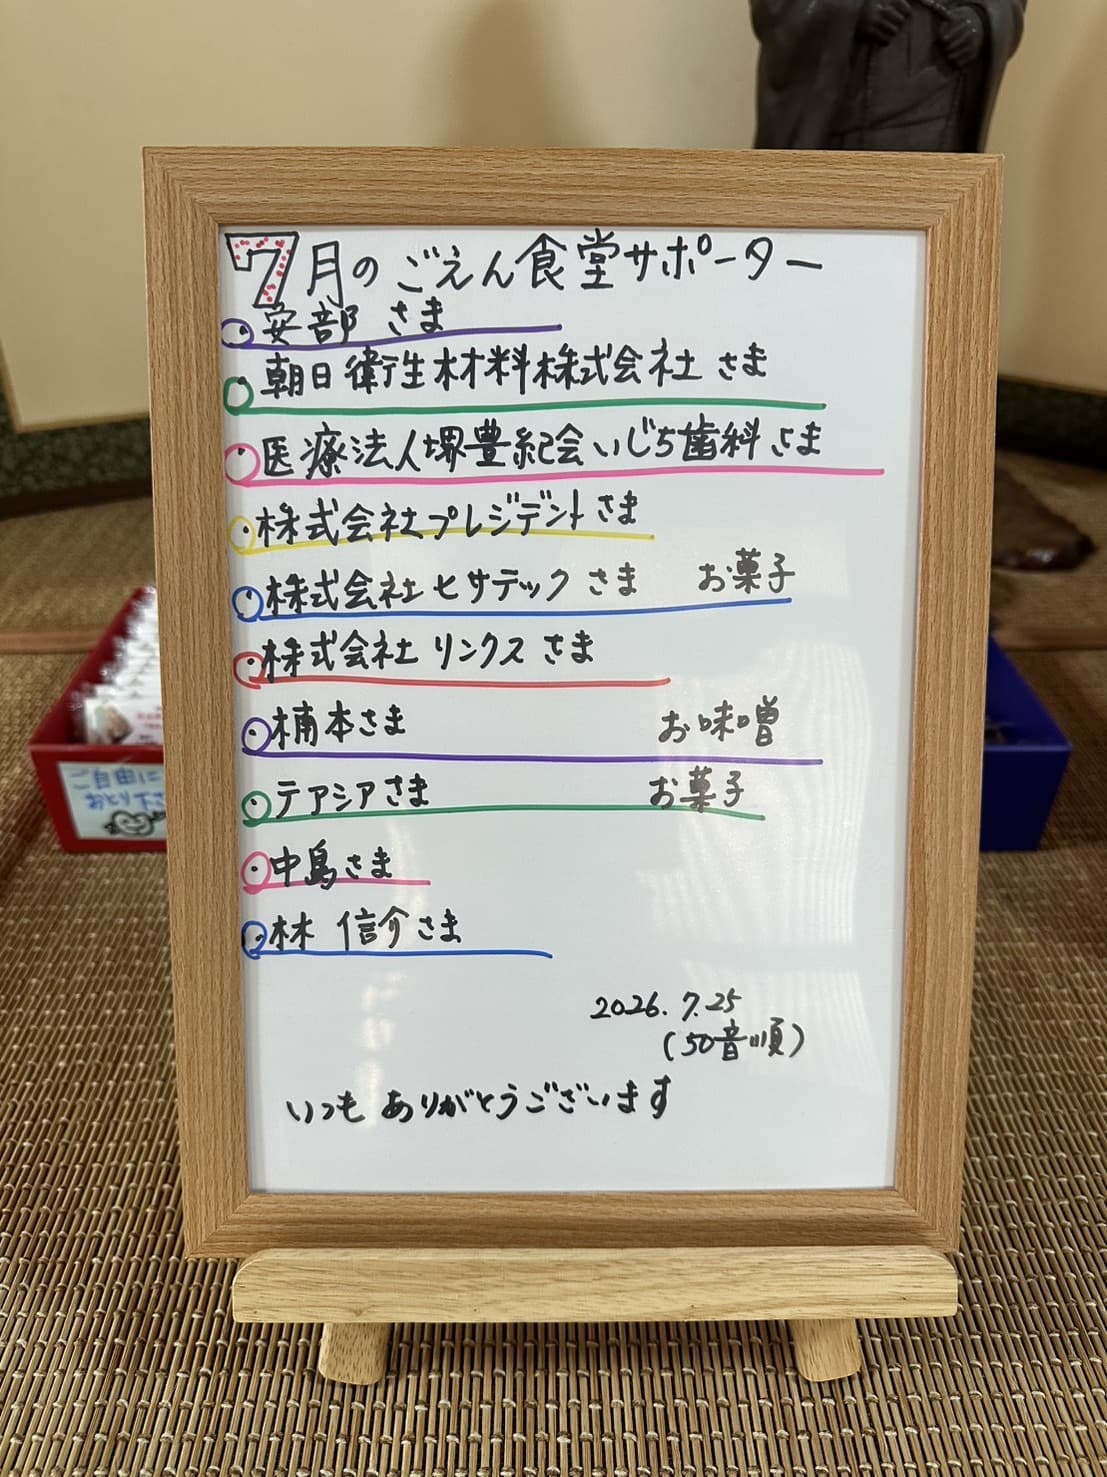 7月のごえん食堂サポーター
安部 さま
朝日衛生材料株式会社 さま
医療法人堺豊紀会いじち歯科さま
株式会社プレジデントさま
株式会社ヒサテック さま お菓子
株式会社 リンクス さま
楠本さま お味噌
テアシアさま お菓子
中島さま
林 信介さま
2026.7.25
(50音順)
いつも ありがとうございます
ご自由に
おとり下さ